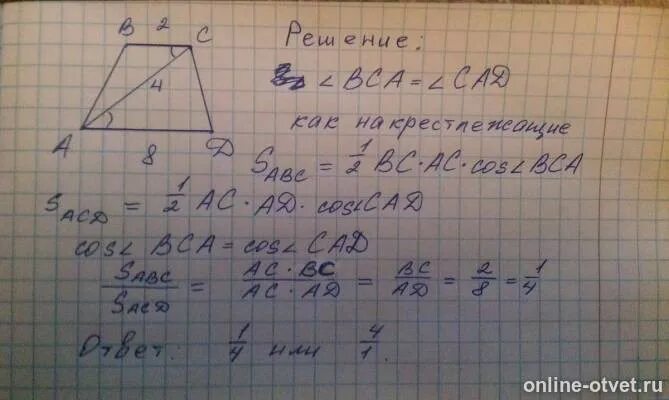 B 2 C
Решение:
∠BCA = ∠CAD
4
как накрестлежащие
A 8 D
S_ABC = 1/2 BC · AC · cos∠BCA
S_ACD = 1/2 AC · AD · cos∠CAD
cos∠BCA = cos∠CAD
S_ABC / S_ACD = AC · BC / AC · AD = BC / AD = 2/8 = 1/4
Ответ: 1/4 или 4/1.
online-otvet.ru